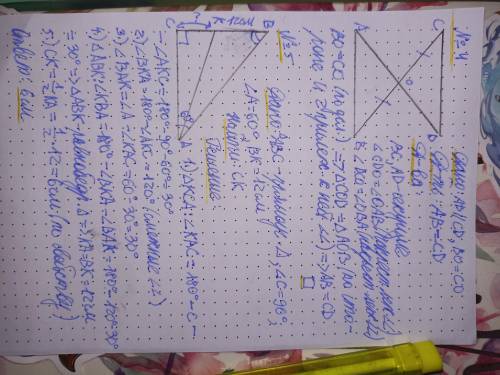 № 4
Дано: AB||CD, BO=CO
Д-ть: AB=CD
Д-во:
BC, AD - секущие
∠CDO=∠OAB
∠DCO=∠OBA
BO=CO (по усл.) => △COD = △AOB (по сто-
роне и 2 прилеж. к ней ∠) => AB=CD
□
№ 5
Дано: ABC - прямоуг. △, ∠C=90°,
∠A=60°, BK=12см
Найти: CK
Решение:
1) △KCA: ∠KAC = 180° - C -
- ∠AKC = 180° - 90° - 60° = 30°
2) ∠BKA = 180° - ∠AKC = 120° (смежные ∠)
3) ∠BAK = ∠A - ∠KAC = 60° - 30° = 30°
4) △ABK: ∠KBA = 180° - ∠BKA - ∠BAK = 180° - 120° - 30°
= 30° => △ABK - равнобедр. △ => KA = BK = 12см
5) CK = 1/2 KA = 1/2 · 12 = 6см (по свойству)
Ответ: 6см
A
C
B
D
O
C
K
12см
B
60°
A